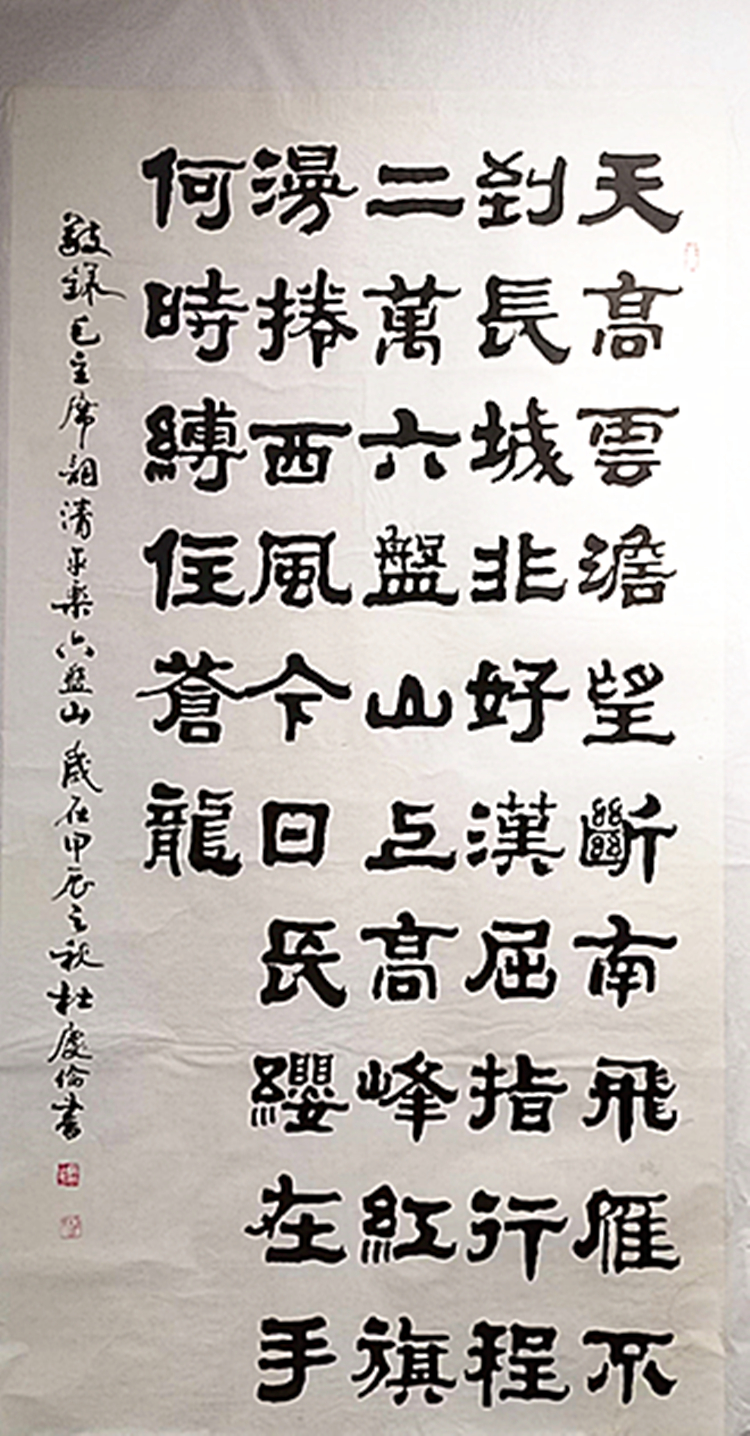 天高雲澹望斷南飛雁不
到長城非好漢屈指行程
二萬六盤山上高峰紅旗
漫捲西風今日長纓在手
何時縛住蒼龍
敬録毛主席詞清平樂六盤山歲在甲辰之秋杜慶倫書